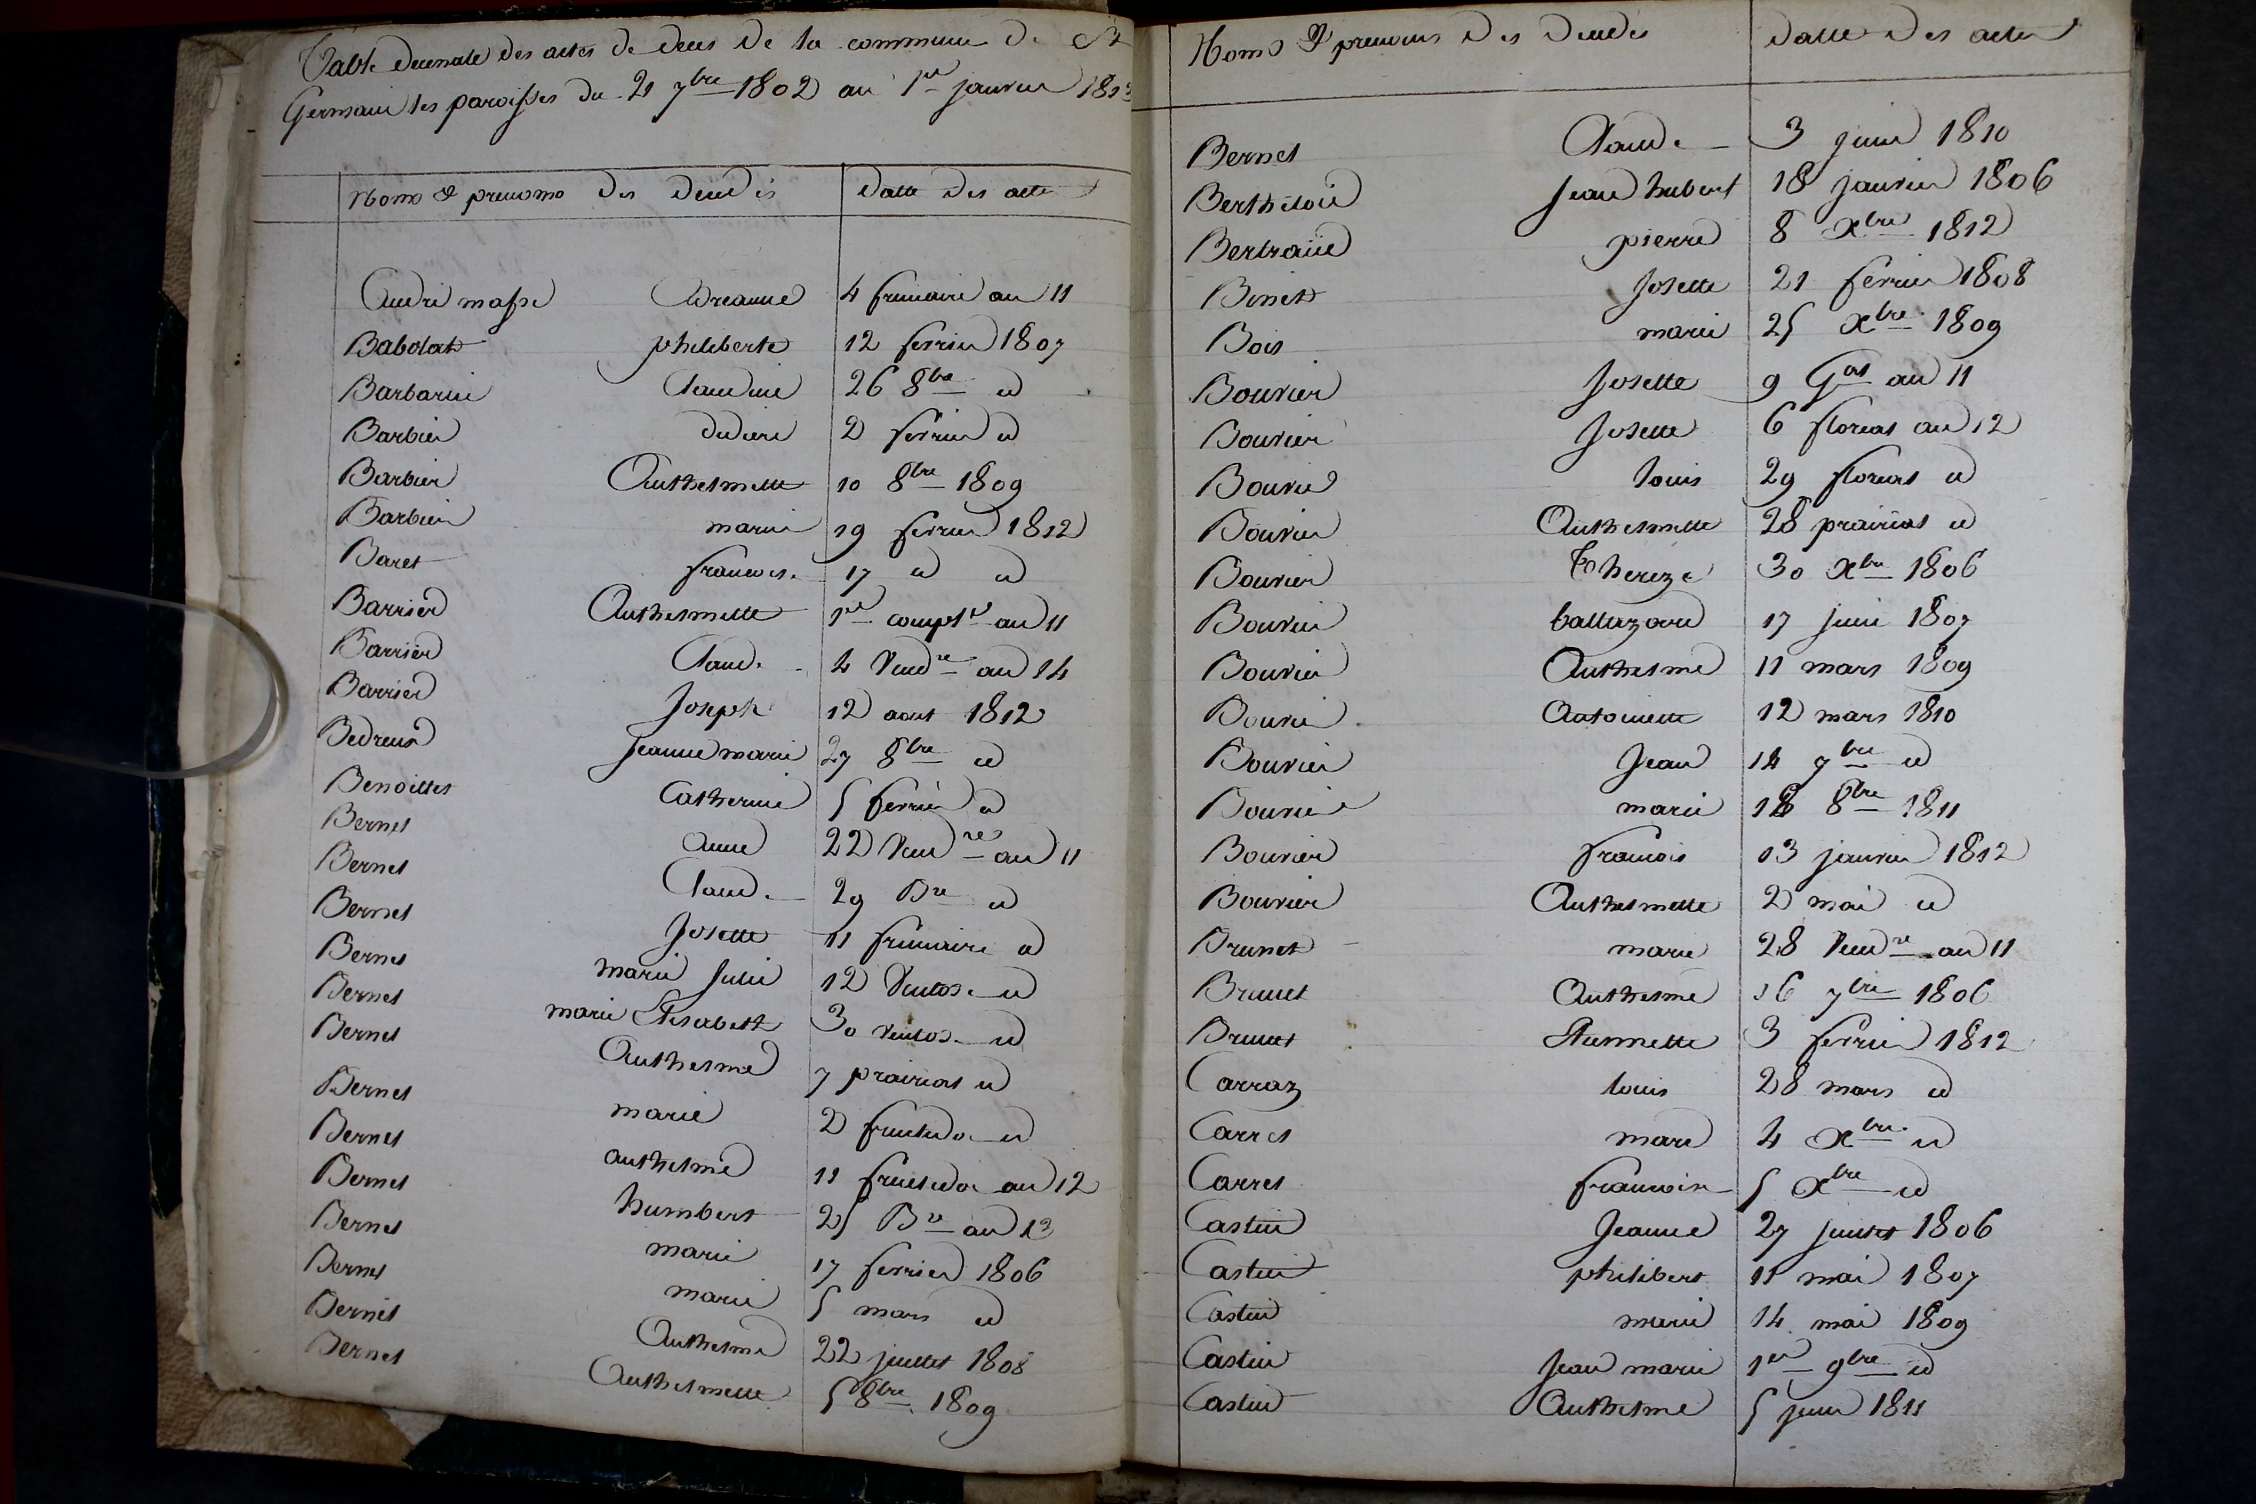 Table decennale des actes de deces de la commune de St
Germain les paroisses du 21 7bre 1802 au 1er janvier 1813
Noms & prenoms des decedés datte des actes
Andrémasse Dreanne 4 frimaire an 11
Babolat philiberte 12 fevrier 1807
Barbarin Claudine 26 8bre id
Barbier didiere 2 fevrier id
Barbier Anthelmette 10 8bre 1809
Barbier marie 19 fevrier 1812
Baret francois 17 id id
Barrier Anthelmette 1er compre an 11
Barrier Claude 4 Vendre an 14
Barrier Joseph 12 aout 1812
Bedreux Jeanne marie 27 8bre id
Benoillet Catherine 5 fevrier id
Bernet anne 22 Vendre an 11
Bernet Claude 29 Bre id
Bernet Josette 11 frimaire id
Bernet marie Julie 12 Ventose id
Bernet marie Elisabeth 30 ventose id
Bernet Anthelme 7 prairial id
Bernet marie 2 fructidor id
Bernet anthelme 11 fructidor an 12
Bernet humbert 25 Bre an 13
Bernet marie 17 fevrier 1806
Bernet marie 5 mars id
Bernet Anthelme 22 juillet 1808
Bernet Anthelmette 5 8bre 1809
Noms & prenoms des decedés datte des actes
Bernet Claude 3 juin 1810
Berthelon Jean hubert 18 janvier 1806
Bertrand pierre 8 Xbre 1812
Binet Josette 21 fevrier 1808
Bois marie 25 Xbre 1809
Bouvier Josette 9 Gal an 11
Bouvier Josette 6 floreal an 12
Bouvier louis 29 floreal id
Bouvier Anthelmette 28 prairial id
Bouvier Thereze 30 Xbre 1806
Bouvier baltazard 17 juin 1807
Bouvier Anthelme 11 mars 1809
Bouvier Antoinette 12 mars 1810
Bouvier Jean 14 7bre id
Bouvier marie 18 8bre 1811
Bouvier francois 13 janvier 1812
Bouvier Anthelmette 2 mai id
Brunet marie 28 Vendre an 11
Brunet Anthelme 16 7bre 1806
Brunet Etiennette 3 fevrier 1812
Carraz louis 28 mars id
Carret marc 4 Xbre id
Carret francoise 5 Xbre id
Castin Jeanne 27 juillet 1806
Castin philibert 11 mai 1807
Castin marie 14 mai 1809
Castin Jean marie 1er 9bre id
Castin Anthelme 5 juin 1811